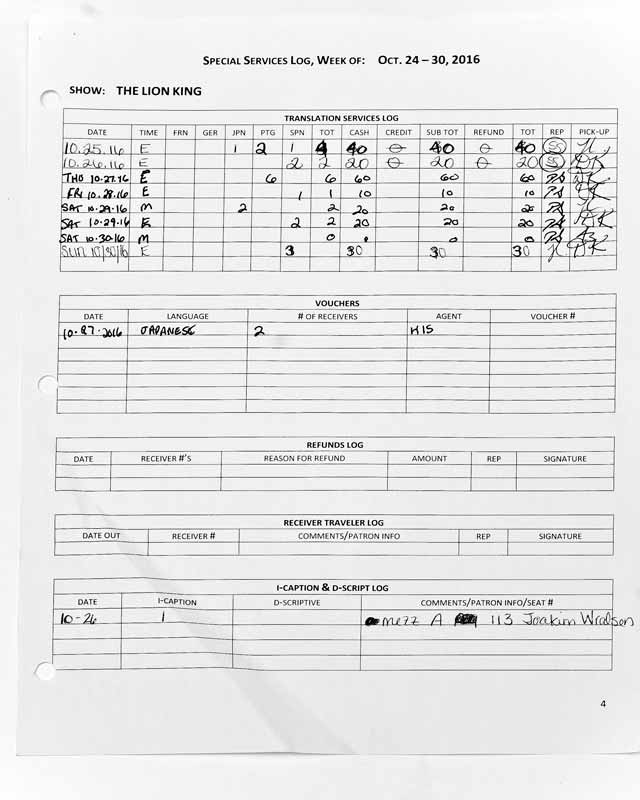 SPECIAL SERVICES LOG, WEEK OF: OCT. 24 – 30, 2016
SHOW: THE LION KING
TRANSLATION SERVICES LOG
DATE TIME FRN GER JPN PTG SPN TOT CASH CREDIT SUB TOT REFUND TOT REP PICK-UP
10.25.16 E 1 2 1 4 40 0 40 0 40 SS
10.26.16 E 2 2 20 0 20 0 20 SS DK
THU 10.27.16 E 6 6 60 60 60 DK
FRI 10.28.16 E 1 1 10 10 10 DK
SAT 10.29.16 M 2 2 20 20 20
SAT 10.29.16 E 2 2 20 20 20 DK
SAT 10.30.16 M 0 0 0 0
SUN 10/30/16 E 3 30 30 30 DK
VOUCHERS
DATE LANGUAGE # OF RECEIVERS AGENT VOUCHER #
10.27.2016 JAPANESE 2 HIS
REFUNDS LOG
DATE RECEIVER #'S REASON FOR REFUND AMOUNT REP SIGNATURE
RECEIVER TRAVELER LOG
DATE OUT RECEIVER # COMMENTS/PATRON INFO REP SIGNATURE
I-CAPTION & D-SCRIPT LOG
DATE I-CAPTION D-SCRIPTIVE COMMENTS/PATRON INFO/SEAT #
10-26 1 mezz A 113 Joakim
4